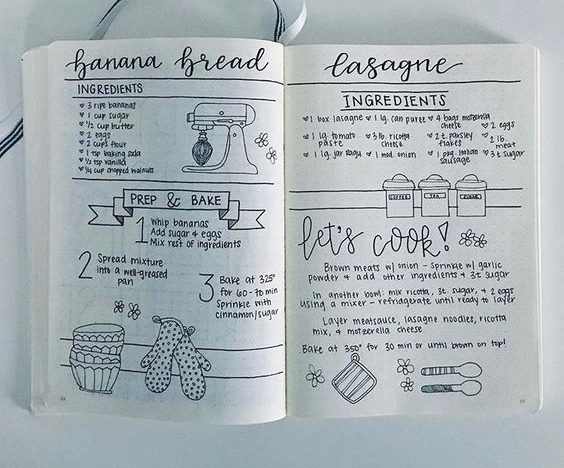 banana bread
INGREDIENTS
3 ripe bananas
1 cup sugar
1/2 cup butter
2 eggs
2 cups flour
1 tsp baking soda
1/2 tsp vanilla
1/4 cup chopped walnuts
PREP & BAKE
1 Whip bananas
Add sugar & eggs
Mix rest of ingredients
2 Spread mixture
into a well-greased
pan
3 Bake at 325°
for 60-70 min
Sprinkle with
cinnamon/sugar
lasagne
INGREDIENTS
1 box lasagne
1 lg. can puree
4 bags motzerella
cheese
2 eggs
1 lg. tomato
paste
3 lb. ricotta
cheese
2 t. parsley
flakes
2 lb.
meat
1 lg. jar ragu
1 med. onion
1 pkg. italian
sausage
3 t sugar
COFFEE TEA SUGAR
let's cook!
Brown meats w/ onion - sprinkle w/ garlic
powder & add other ingredients & 3t sugar
In another bowl: mix ricotta, 3t. sugar, & 2 eggs
using a mixer - refridgerate until ready to layer
Layer meatsauce, lasagne noodles, ricotta
mix, & motzerella cheese
Bake at 350° for 30 min or until brown on top!